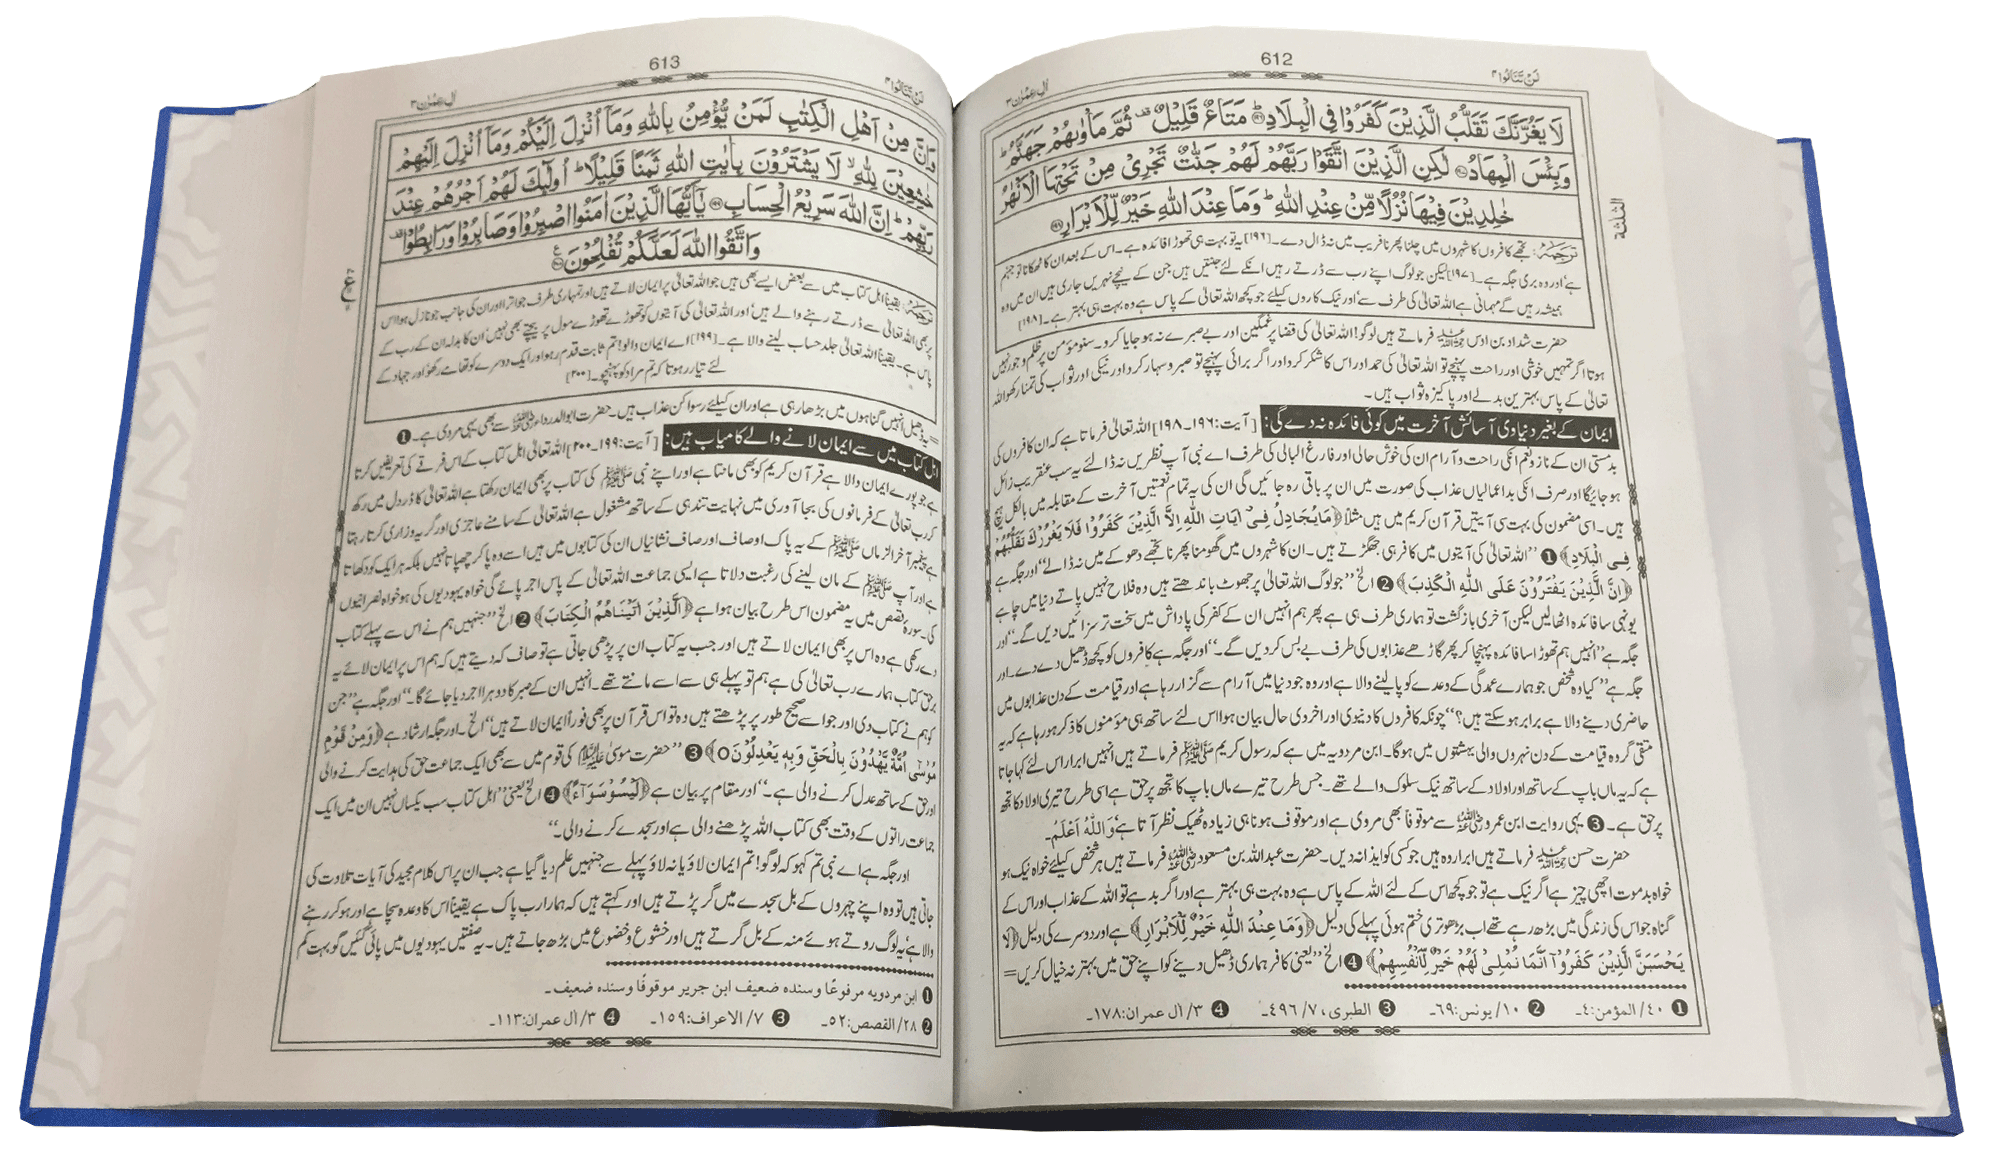 612
لَنْ تَنَالُوا ٤
اٰلِ عِمْرٰن ٣
لَا يَغُرَّنَّكَ تَقَلُّبُ الَّذِيْنَ كَفَرُوْا فِي الْبِلَادِ ۱۹۶ مَتَاعٌ قَلِيْلٌ ثُمَّ مَاْوٰىهُمْ جَهَنَّمُ ط
وَبِئْسَ الْمِهَادُ ۱۹۷ لٰكِنِ الَّذِيْنَ اتَّقَوْا رَبَّهُمْ لَهُمْ جَنّٰتٌ تَجْرِيْ مِنْ تَحْتِهَا الْاَنْهٰرُ
خٰلِدِيْنَ فِيْهَا نُزُلًا مِّنْ عِنْدِ اللّٰهِ ط وَمَا عِنْدَ اللّٰهِ خَيْرٌ لِّلْاَبْرَارِ ۱۹۸
الثلثة
ترجمہ: تجھے کافروں کا شہروں میں چلنا پھرنا فریب میں نہ ڈال دے۔[۱۹۶] یہ تو بہت ہی تھوڑا فائدہ ہے۔ اس کے بعد ان کا ٹھکانا تو جہنم
ہے اور وہ بری جگہ ہے۔[۱۹۷] لیکن جو لوگ اپنے رب سے ڈرتے رہیں انکے لئے جنتیں ہیں جن کے نیچے نہریں جاری ہیں ان میں وہ
ہمیشہ رہیں گے مہمانی ہے اللہ تعالیٰ کی طرف سے اور نیک کاروں کیلئے جو کچھ اللہ تعالیٰ کے پاس ہے وہ بہت ہی بہتر ہے۔[۱۹۸]
حضرت شداد بن اوس ؓ فرماتے ہیں لوگو! اللہ تعالیٰ کی قضا پر غمگین اور بے صبرے نہ ہو جایا کرو۔ سنو مؤمن پر ظلم و جور نہیں
ہوتا اگر تمہیں خوشی اور راحت پہنچے تو اللہ تعالیٰ کی حمد اور اس کا شکر کرو اور اگر برائی پہنچے تو صبر و سہار کرو اور نیکی اور ثواب کی تمنا رکھو اللہ
تعالیٰ کے پاس بہترین بدلے اور پاکیزہ ثواب ہیں۔
ایمان کے بغیر دنیاوی آسائش آخرت میں کوئی فائدہ نہ دے گی: [آیت:۱۹۶۔۱۹۸] اللہ تعالیٰ فرماتا ہے کہ ان کافروں کی
بدمستی ان کے ناز و نعم انکی راحت و آرام ان کی خوش حالی اور فارغ البالی کی طرف اے نبی آپ نظریں نہ ڈالئے یہ سب عنقریب زائل
ہو جائیگا اور صرف انکی بداعمالیاں عذاب کی صورت میں ان پر باقی رہ جائیں گی ان کی یہ تمام نعمتیں آخرت کے مقابلہ میں بالکل ہیچ
ہیں۔ اسی مضمون کی بہت سی آیتیں قرآن کریم میں ہیں مثلاً ﴿مَا يُجَادِلُ فِيْ اٰيَاتِ اللّٰهِ اِلَّا الَّذِيْنَ كَفَرُوْا فَلَا يَغْرُرْكَ تَقَلُّبُهُمْ
فِي الْبِلَادِ﴾ ❶ ’’اللہ تعالیٰ کی آیتوں میں کافر ہی جھگڑتے ہیں۔ ان کا شہروں میں گھومنا پھرنا تجھے دھوکے میں نہ ڈالے‘‘ اور جگہ ہے
﴿اِنَّ الَّذِيْنَ يَفْتَرُوْنَ عَلَى اللّٰهِ الْكَذِبَ﴾ ❷ الخ ’’جو لوگ اللہ تعالیٰ پر جھوٹ باندھتے ہیں وہ فلاح نہیں پاتے دنیا میں چاہے
یونہی سا فائدہ اٹھا لیں لیکن آخری بازگشت تو ہماری طرف ہی ہے پھر ہم انہیں ان کے کفر کی پاداش میں سخت تر سزائیں دیں گے۔‘‘ اور
جگہ ہے ’’انہیں ہم تھوڑا سا فائدہ پہنچا کر پھر گاڑھے عذابوں کی طرف بے بس کر دیں گے۔‘‘ اور جگہ ہے کافروں کو کچھ ڈھیل دے دے۔ اور
جگہ ہے ’’کیا وہ شخص جو ہمارے عمدگی کے وعدے کو پا لینے والا ہے اور وہ جو دنیا میں آرام سے گزار رہا ہے اور قیامت کے دن عذابوں میں
حاضری دینے والا ہے برابر ہو سکتے ہیں؟‘‘ چونکہ کافروں کا دنیوی اور اخروی حال بیان ہوا اس لئے ساتھ ہی مؤمنوں کا ذکر ہو رہا ہے کہ یہ
متقی گروہ قیامت کے دن نہروں والی بہشتوں میں ہوگا۔ ابن مردویہ میں ہے کہ رسول کریم ﷺ فرماتے ہیں انہیں ابرار اس لئے کہا جاتا
ہے کہ یہ ماں باپ کے ساتھ اور اولاد کے ساتھ نیک سلوک والے تھے۔ جس طرح تیرے ماں باپ کا تجھ پر حق ہے اسی طرح تیری اولاد کا تجھ
پر حق ہے۔ ❸ یہی روایت ابن عمرو ؓ سے موقوفاً بھی مروی ہے اور موقوف ہونا ہی زیادہ ٹھیک نظر آتا ہے وَاللّٰهُ اَعْلَمُ۔
حضرت حسن ؒ فرماتے ہیں ابرار وہ ہیں جو کسی کو ایذا نہ دیں۔ حضرت عبداللہ بن مسعود ؓ فرماتے ہیں ہر شخص کیلئے خواہ نیک ہو
خواہ بد موت اچھی چیز ہے اگر نیک ہے تو جو کچھ اس کے لئے اللہ کے پاس ہے وہ بہت ہی بہتر ہے اور اگر بد ہے تو اللہ کے عذاب اور اس کے
گناہ جو اس کی زندگی میں بڑھ رہے تھے اب بڑھوتری ختم ہوئی پہلے کی دلیل ﴿وَمَا عِنْدَ اللّٰهِ خَيْرٌ لِّلْاَبْرَارِ﴾ ہے اور دوسرے کی دلیل ﴿لَا
يَحْسَبَنَّ الَّذِيْنَ كَفَرُوْا اَنَّمَا نُمْلِيْ لَهُمْ خَيْرٌ لِّاَنْفُسِهِمْ﴾ ❹ الخ ’’یعنی کافر ہماری ڈھیل دینے کو اپنے حق میں بہتر نہ خیال کریں=
❶ ٤٠/ المؤمن:٤۔ ❷ ١٠/ یونس:٦٩۔ ❸ الطبری، ٧/ ٤٩٦۔ ❹ ٣/ اٰل عمران:١٧٨۔
613
لَنْ تَنَالُوا ٤
اٰلِ عِمْرٰن ٣
وَاِنَّ مِنْ اَهْلِ الْكِتٰبِ لَمَنْ يُّؤْمِنُ بِاللّٰهِ وَمَآ اُنْزِلَ اِلَيْكُمْ وَمَآ اُنْزِلَ اِلَيْهِمْ
خٰشِعِيْنَ لِلّٰهِ لا لَا يَشْتَرُوْنَ بِاٰيٰتِ اللّٰهِ ثَمَنًا قَلِيْلًا ط اُولٰٓئِكَ لَهُمْ اَجْرُهُمْ عِنْدَ
رَبِّهِمْ ط اِنَّ اللّٰهَ سَرِيْعُ الْحِسَابِ ۱۹۹ يٰٓاَيُّهَا الَّذِيْنَ اٰمَنُوا اصْبِرُوْا وَصَابِرُوْا وَرَابِطُوْا
وَاتَّقُوا اللّٰهَ لَعَلَّكُمْ تُفْلِحُوْنَ ۲۰۰
ع
ترجمہ: یقیناً اہل کتاب میں سے بعض ایسے بھی ہیں جو اللہ تعالیٰ پر ایمان لاتے ہیں اور تمہاری طرف جو اترا اور ان کی جانب جو نازل ہوا اس
پر بھی اللہ تعالیٰ سے ڈرتے رہنے والے ہیں اور اللہ تعالیٰ کی آیتوں کو تھوڑے تھوڑے مول پر بیچتے بھی نہیں ان کا بدلہ ان کے رب کے
پاس ہے۔ یقیناً اللہ تعالیٰ جلد حساب لینے والا ہے۔[۱۹۹] اے ایمان والو! تم ثابت قدم رہو اور ایک دوسرے کو تھامے رکھو اور جہاد کے
لئے تیار رہو تا کہ تم مراد کو پہنچو۔[۲۰۰]
= یہ ڈھیل انہیں گناہوں میں بڑھا رہی ہے اور ان کیلئے رسوا کن عذاب ہیں۔ حضرت ابو الدرداء ؓ سے بھی یہی مروی ہے۔ ❶
اہل کتاب میں سے ایمان لانے والے کامیاب ہیں: [آیت:۱۹۹۔۲۰۰] اللہ تعالیٰ اہل کتاب کے اس فرقے کی تعریفیں کرتا
ہے جو پورے ایمان والا ہے قرآن کریم کو بھی مانتا ہے اور اپنے نبی ﷺ کی کتاب پر بھی ایمان رکھتا ہے اللہ تعالیٰ کا ڈر دل میں رکھ
کر رب تعالیٰ کے فرمانوں کی بجا آوری میں نہایت تندہی کے ساتھ مشغول ہے اللہ تعالیٰ کے سامنے عاجزی اور گریہ وزاری کرتا رہتا
ہے پیغمبر آخر الزماں ﷺ کے یہ پاک اوصاف اور صاف نشانیاں ان کی کتابوں میں ہیں اسے وہ پا کر چھپاتا نہیں بلکہ ہر ایک کو دکھاتا
ہے اور آپ ﷺ کے مان لینے کی رغبت دلاتا ہے ایسی جماعت اللہ تعالیٰ کے پاس اجر پائے گی خواہ یہودیوں کی ہو خواہ نصرانیوں
کی۔ سورہ قصص میں یہ مضمون اس طرح بیان ہوا ہے ﴿اَلَّذِيْنَ اٰتَيْنَاهُمُ الْكِتَابَ﴾ ❷ الخ ’’جنہیں ہم نے اس سے پہلے کتاب
دے رکھی ہے وہ اس پر بھی ایمان لاتے ہیں اور جب یہ کتاب ان پر پڑھی جاتی ہے تو صاف کہہ دیتے ہیں کہ ہم اس پر ایمان لائے یہ
برحق کتاب ہمارے رب تعالیٰ کی ہے ہم تو پہلے ہی سے اسے مانتے تھے۔ انہیں ان کے صبر کا دوہرا اجر دیا جائے گا۔‘‘ اور جگہ ہے ’’جن
کو ہم نے کتاب دی اور جو اسے صحیح طور پر پڑھتے ہیں وہ تو اس قرآن پر بھی فوراً ایمان لاتے ہیں‘‘ الخ۔ اور جگہ ارشاد ہے ﴿وَمِنْ قَوْمِ
مُوْسٰى اُمَّةٌ يَّهْدُوْنَ بِالْحَقِّ وَبِهٖ يَعْدِلُوْنَ○﴾ ❸ ’’حضرت موسیٰ علیہ السلام کی قوم میں سے بھی ایک جماعت حق کی ہدایت کرنے والی
اور حق کے ساتھ عدل کرنے والی ہے۔‘‘ اور مقام پر بیان ہے ﴿لَيْسُوْا سَوَآءً﴾ ❹ الخ یعنی ’’اہل کتاب سب یکساں نہیں ان میں ایک
جماعت راتوں کے وقت بھی کتاب اللہ پڑھنے والی ہے اور سجدے کرنے والی۔‘‘
اور جگہ ہے اے نبی تم کہو کہ لوگو! تم ایمان لاؤ یا نہ لاؤ پہلے سے جنہیں علم دیا گیا ہے جب ان پر اس کلام مجید کی آیات تلاوت کی
جاتی ہیں تو وہ اپنے چہروں کے بل سجدے میں گر پڑتے ہیں اور کہتے ہیں کہ ہمارا رب پاک ہے یقیناً اس کا وعدہ سچا ہے اور ہو کر رہنے
والا ہے یہ لوگ روتے ہوئے منہ کے بل گرتے ہیں اور خشوع و خضوع میں بڑھ جاتے ہیں۔ یہ صفتیں یہودیوں میں پائی گئیں گو بہت کم
❶ ابن مردویہ مرفوعًا وسندہ ضعیف ابن جریر موقوفًا وسندہ ضعیف۔
❷ ٢٨/ القصص:٥٢۔ ❸ ٧/ الاعراف:١٥٩۔ ❹ ٣/ اٰل عمران:١١٣۔